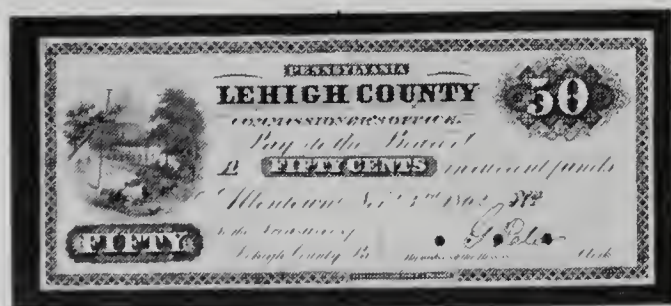 PENNSYLVANIA
50
LEHIGH COUNTY
COMMISSIONER'S OFFICE.
Pay to the Bearer
FIFTY CENTS in current funds
Allentown
FIFTY
to the Treasury
Lehigh County Pa.
Clerk